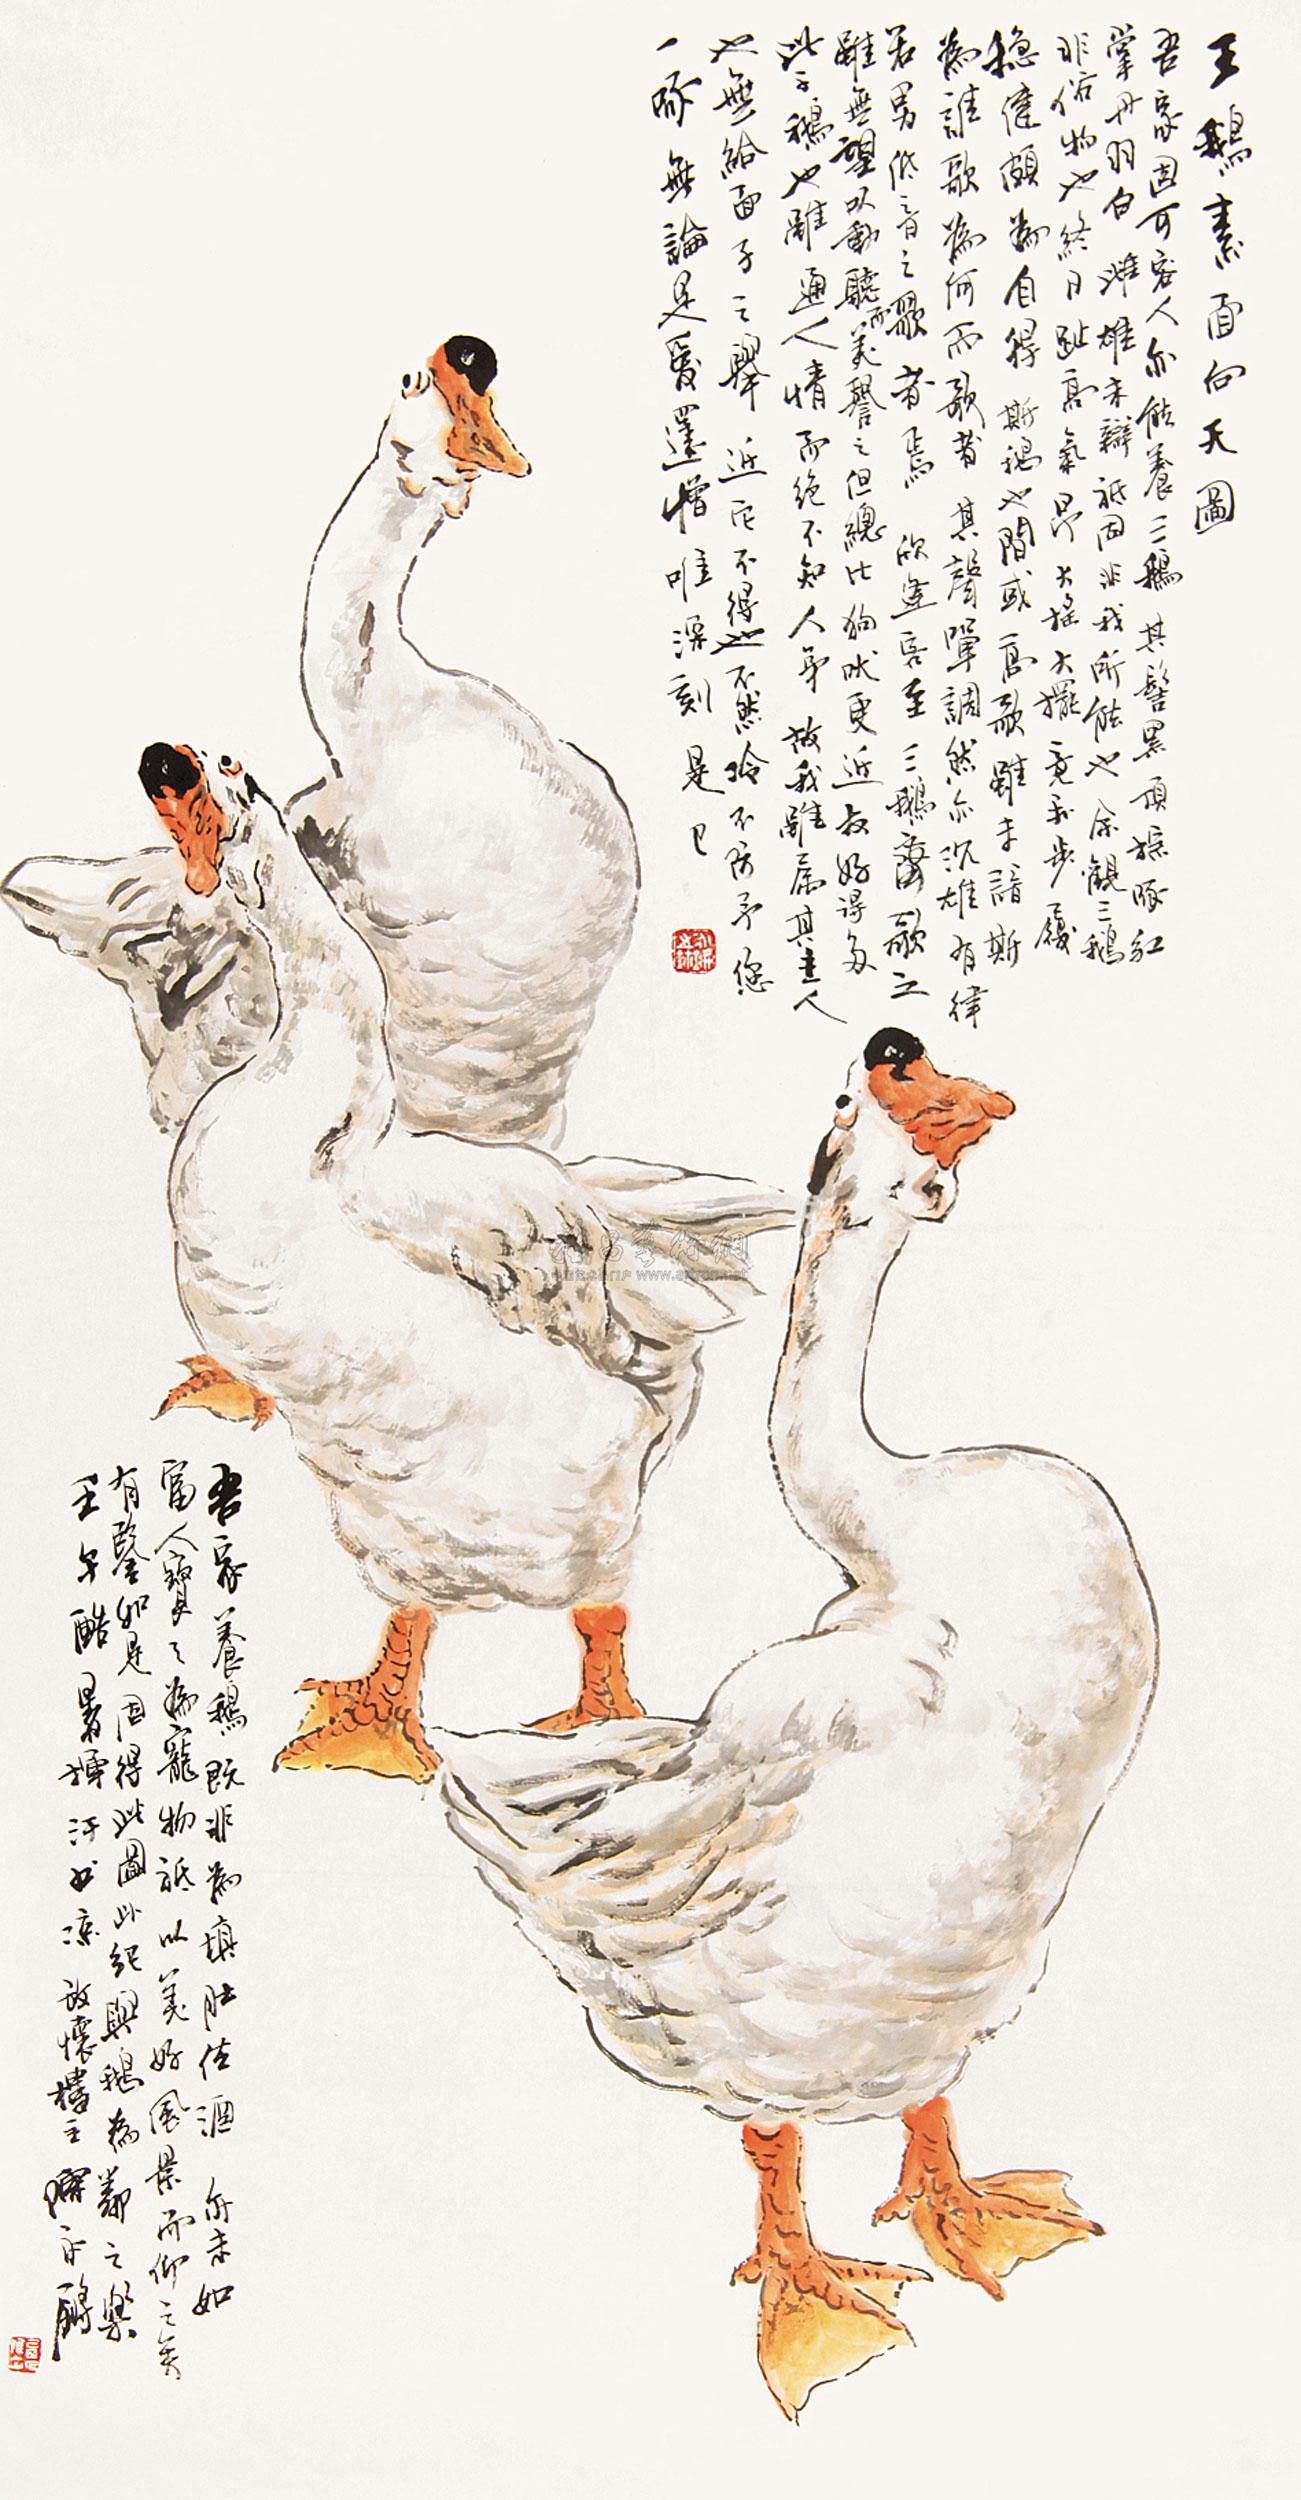 王鵝素面向天圖
吾家固可容人亦能養三鵝其髻黑頂棕啄紅
掌丹羽白雌雄未辯祗因非我所能也余觀三鵝
非俗物也終日趾高氣昂大搖大擺竟我步履
穩健頗為自得斯鵝也間或高歌雖未諳斯
為誰歌為何而歌者其聲單調然亦沉雄有律
若男低音之歌者焉欣逢客至三鵝齊歌之
雖無望以動聽而美譽之但總比狗吠更近叔好得多
此三鵝也雖通人情而絕不知人弟故我雖屬其主人
也無給面子之舉近它不得也不然冷不防予您
一啄無論是愛還憎唯深刻是已
吾家養鵝既非為填肚佐酒亦未如
富人寶之為寵物祗以美好風景而仰之矣
有鑒如是因得此圖此紀與鵝為鄰之樂
壬午酷暑揮汗水涼放懷樓主陳永鏘
www.artron.net